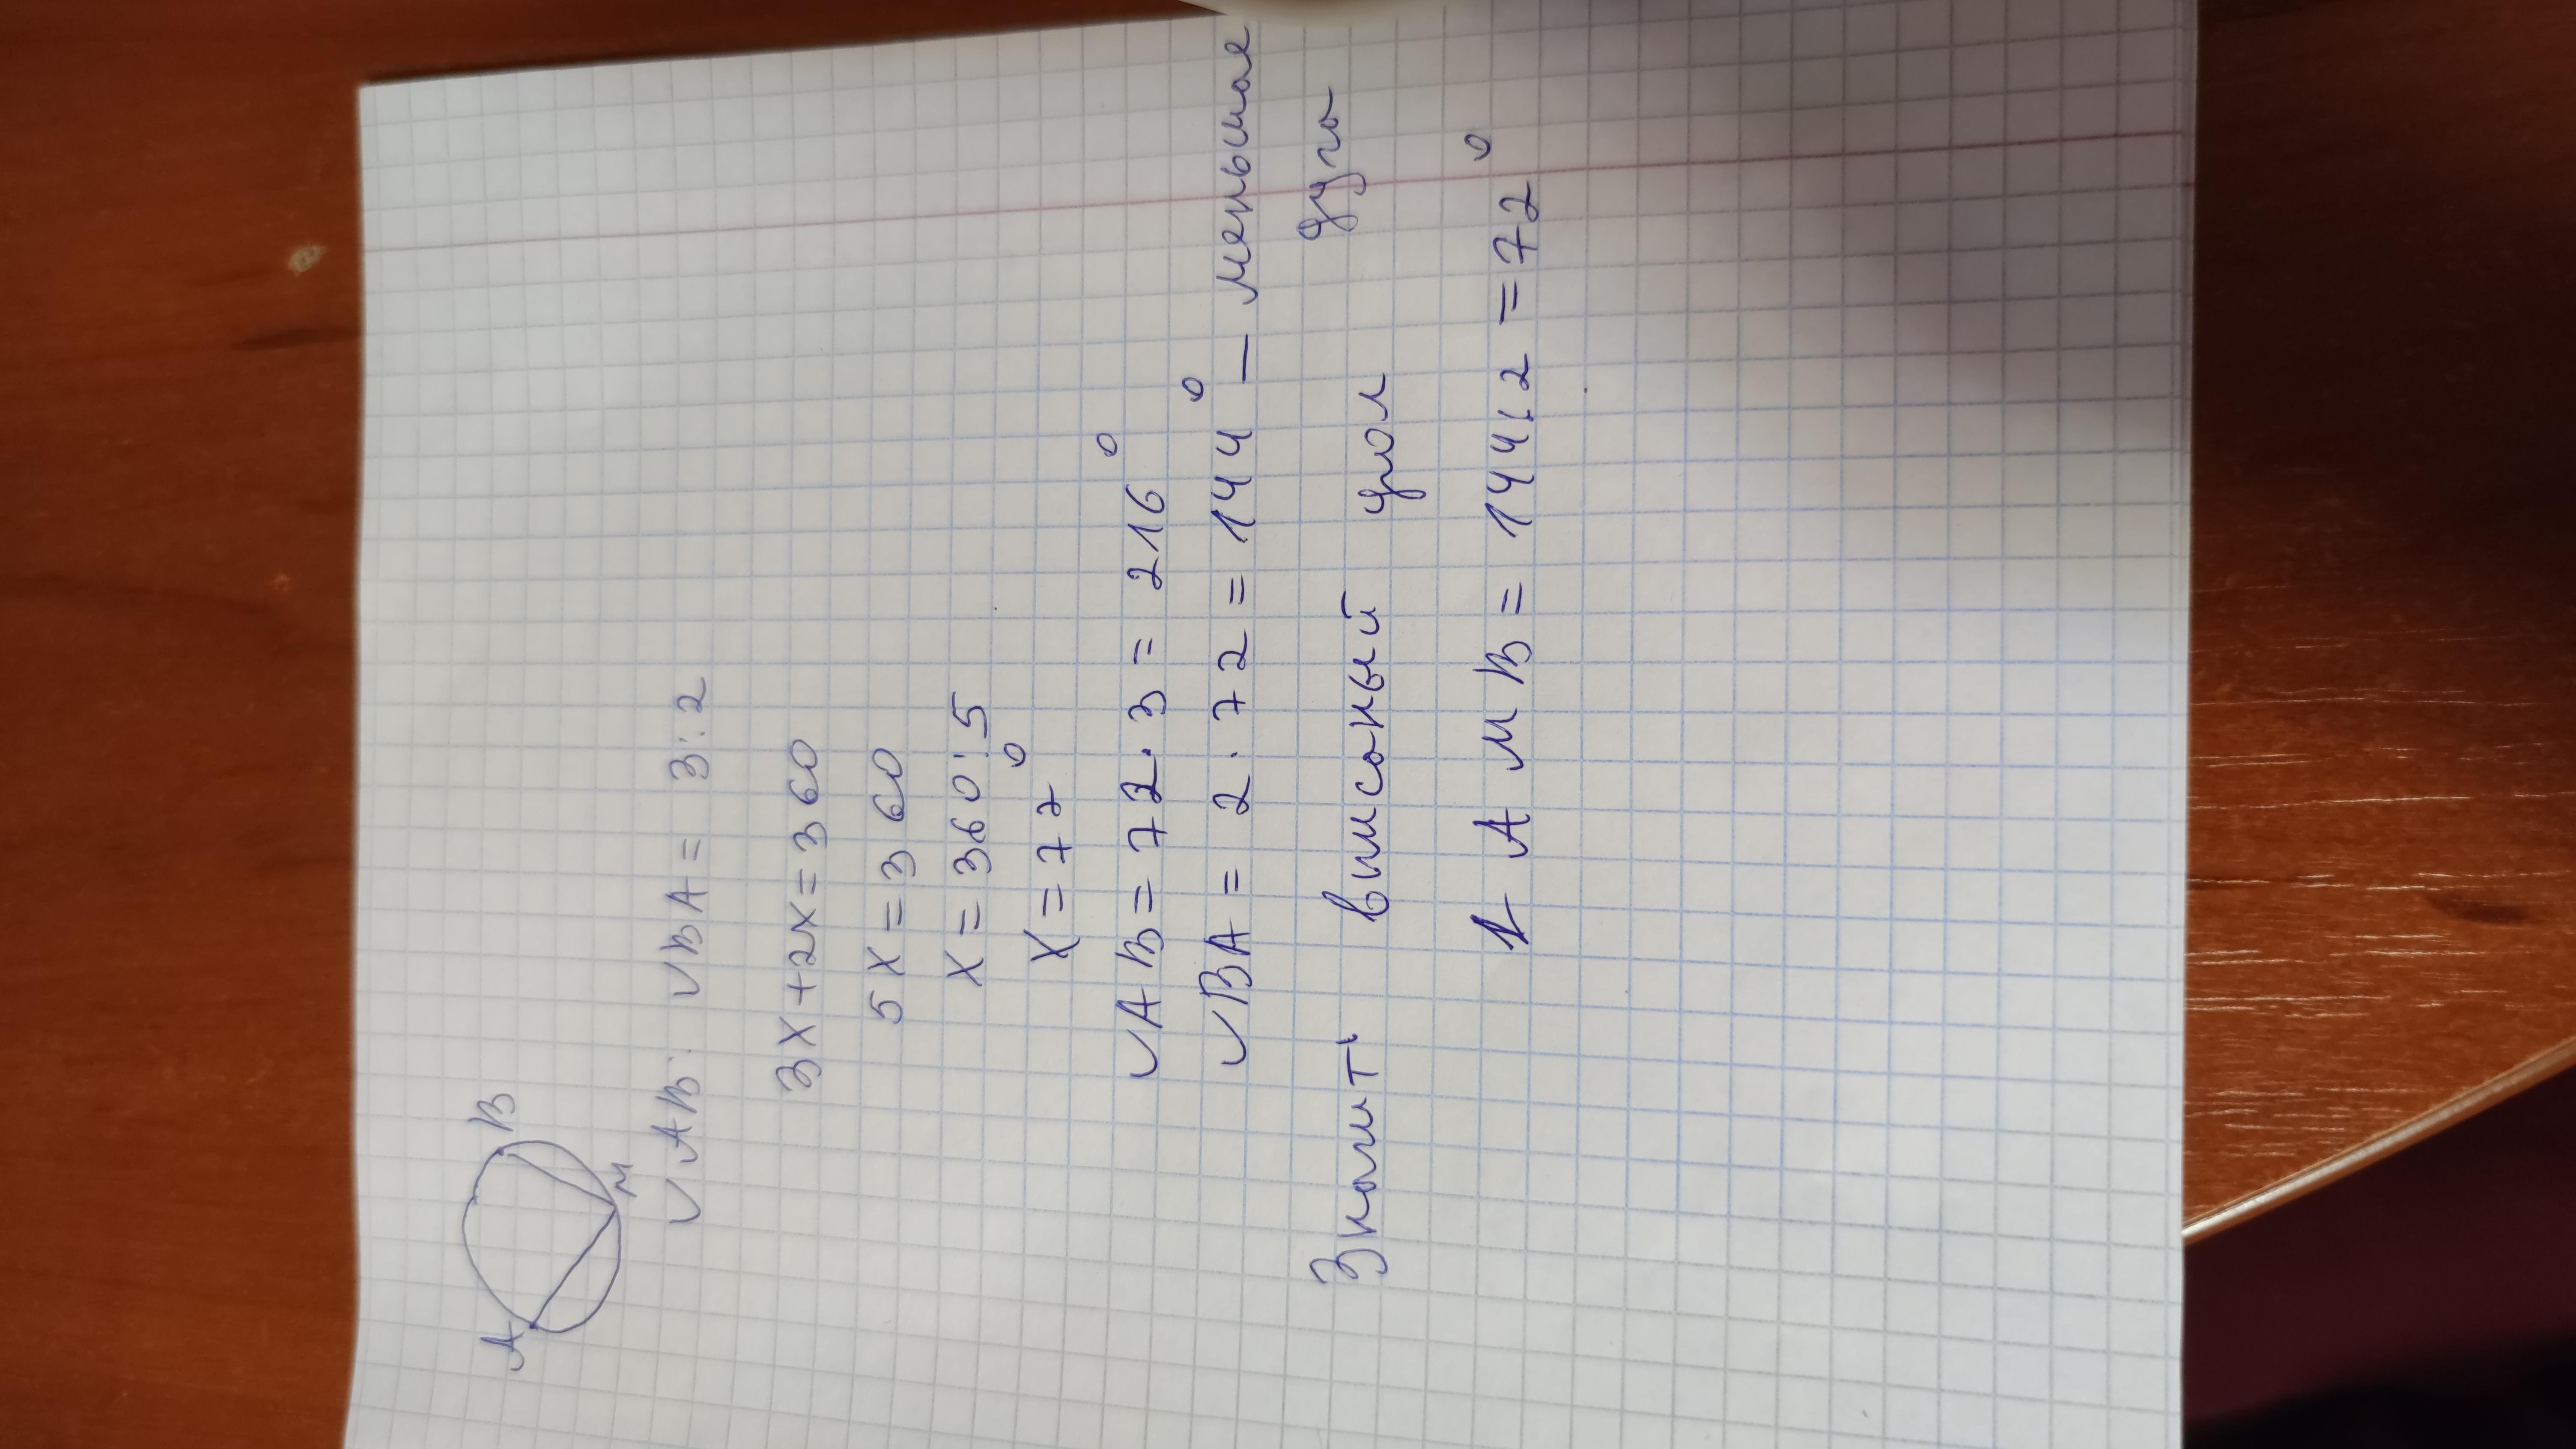 A B
M
◡AB : ◡BA = 3:2
3x+2x=360
5x=360
x=360:5
x=72°
◡AB=72·3=216°
◡BA=2·72=144° – меньшая
дуга
Значит вписаный угол
∠AMB=144:2=72°